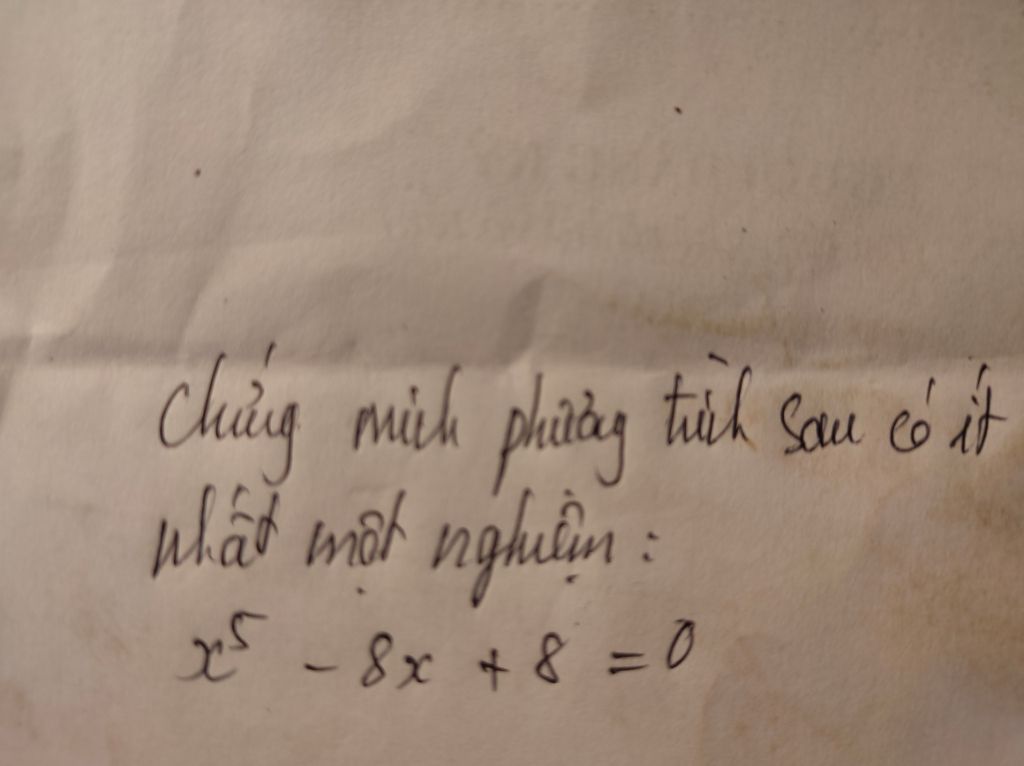 Chứng minh phương trình sau có ít
nhất một nghiệm :
x⁵ - 8x + 8 = 0